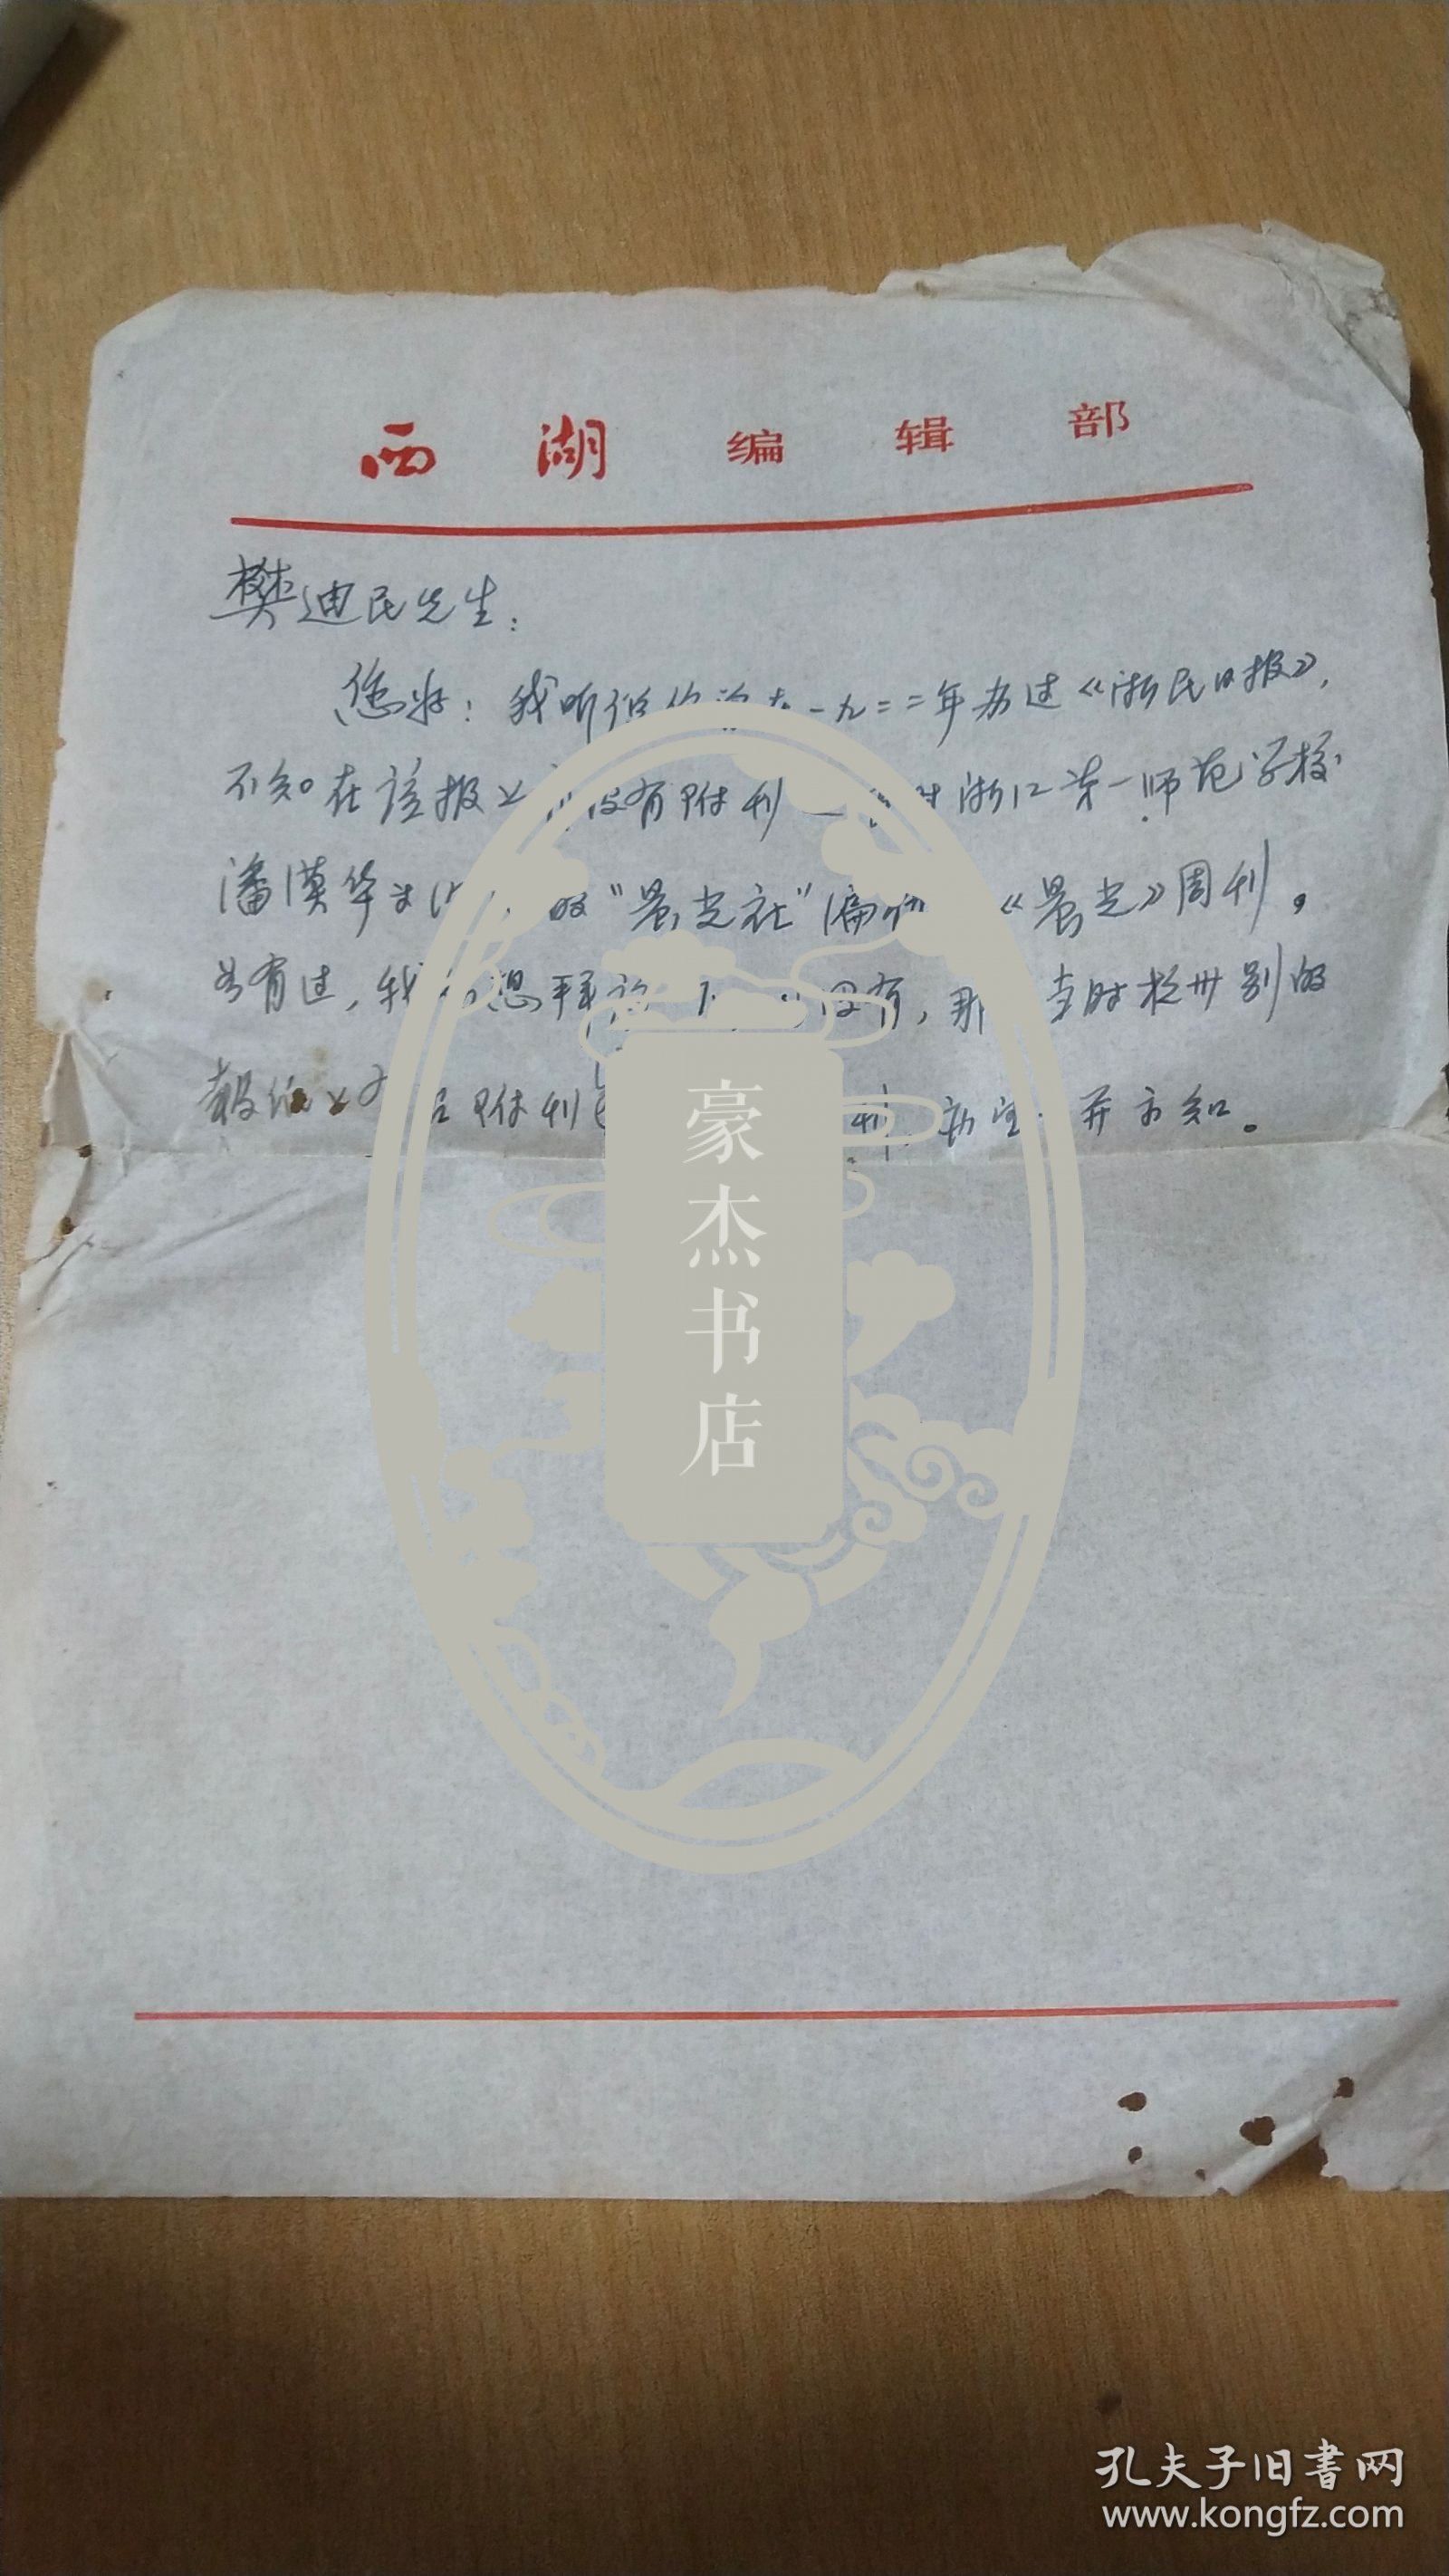 西湖编辑部
樊迪民先生:
您好!我听说你曾在一九二二年办过《浙民日报》,
不知在该报上有没有附刊 时浙江第一师范学校
潘漠华 的"晨光社"编 《晨光》周刊。
若有过,我 想拜访 没有,那 当时杭州别的
报纸上 附刊 并示知。
豪杰书店
孔夫子旧书网
www.kongfz.com